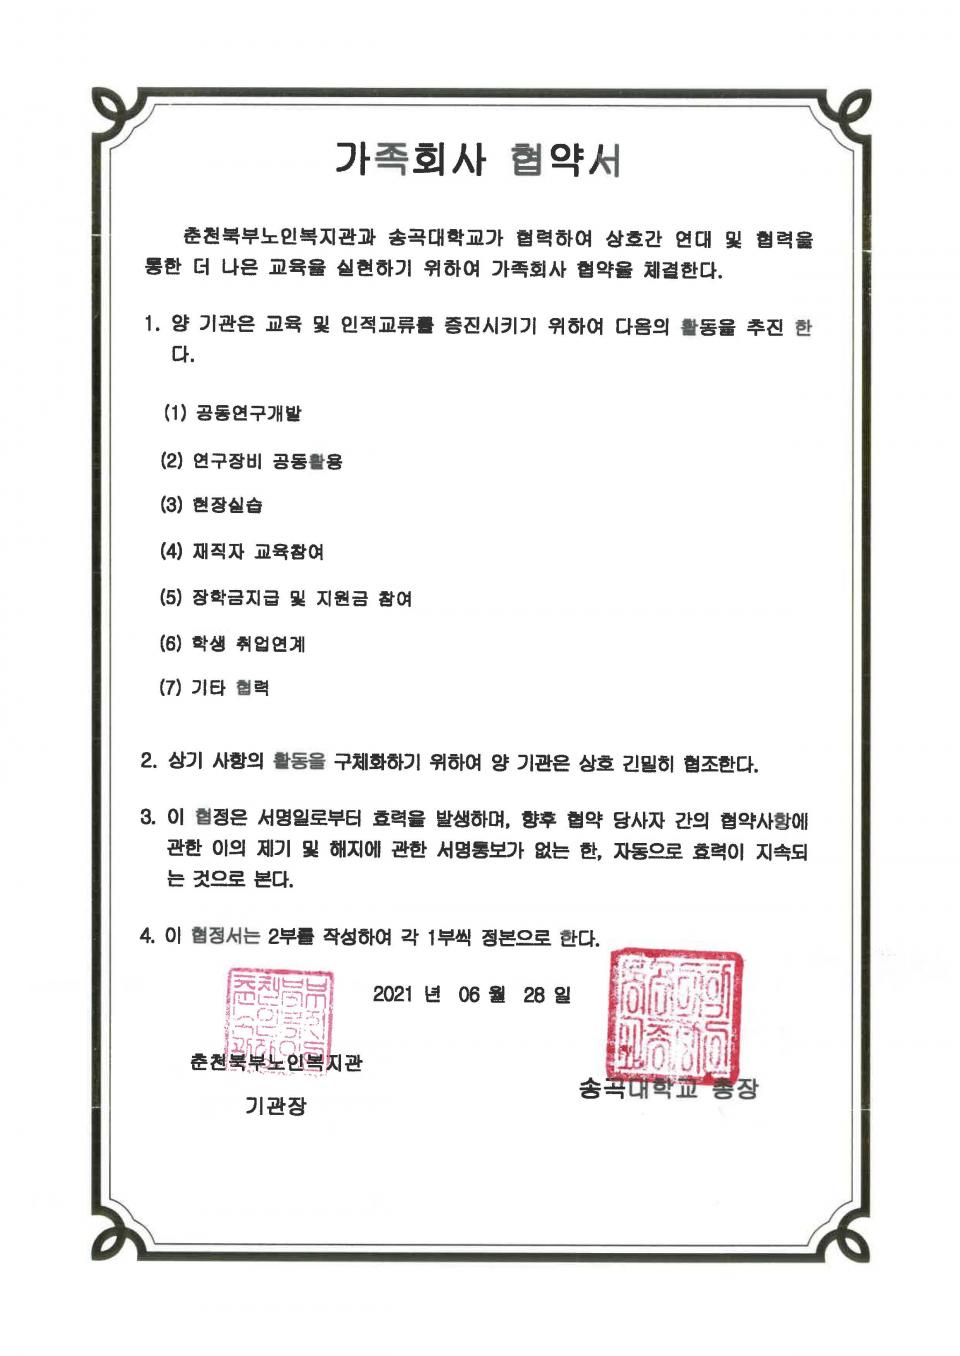 가족회사 협약서
춘천북부노인복지관과 송곡대학교가 협력하여 상호간 연대 및 협력을
통한 더 나은 교육을 실현하기 위하여 가족회사 협약을 체결한다.
1. 양 기관은 교육 및 인적교류를 증진시키기 위하여 다음의 활동을 추진 한
다.
(1) 공동연구개발
(2) 연구장비 공동활용
(3) 현장실습
(4) 재직자 교육참여
(5) 장학금지급 및 지원금 참여
(6) 학생 취업연계
(7) 기타 협력
2. 상기 사항의 활동을 구체화하기 위하여 양 기관은 상호 긴밀히 협조한다.
3. 이 협정은 서명일로부터 효력을 발생하며, 향후 협약 당사자 간의 협약사항에
관한 이의 제기 및 해지에 관한 서명통보가 없는 한, 자동으로 효력이 지속되
는 것으로 본다.
4. 이 협정서는 2부를 작성하여 각 1부씩 정본으로 한다.
2021 년 06 월 28 일
춘천북부노인복지관
기관장
송곡대학교 총장